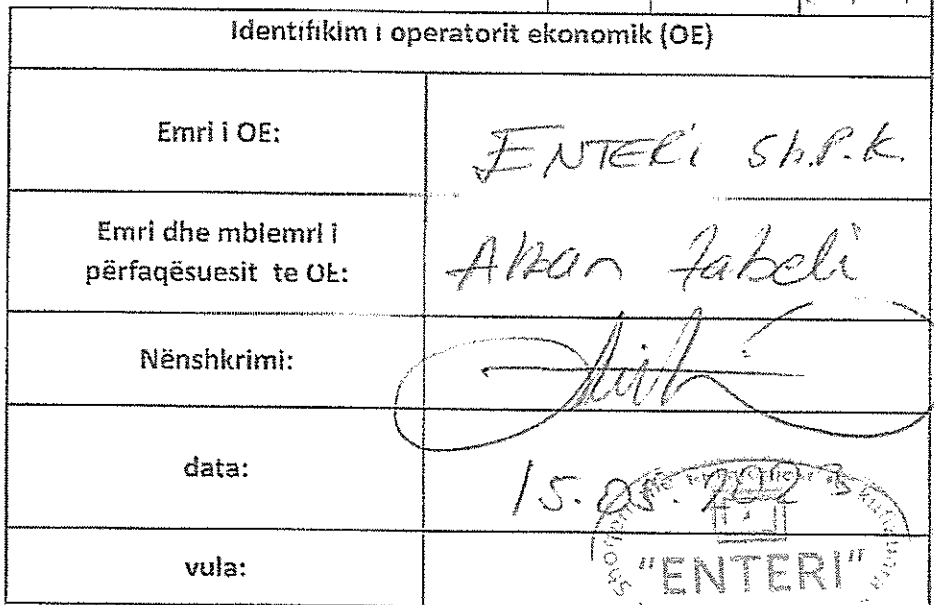 Identifikim i operatorit ekonomik (OE)
Emri i OE:
ENTERi Sh.P.K.
Emri dhe mbiemri i
përfaqësuesit te OE:
Nënshkrimi:
data:
15.05.2023
vula:
"ENTERI"